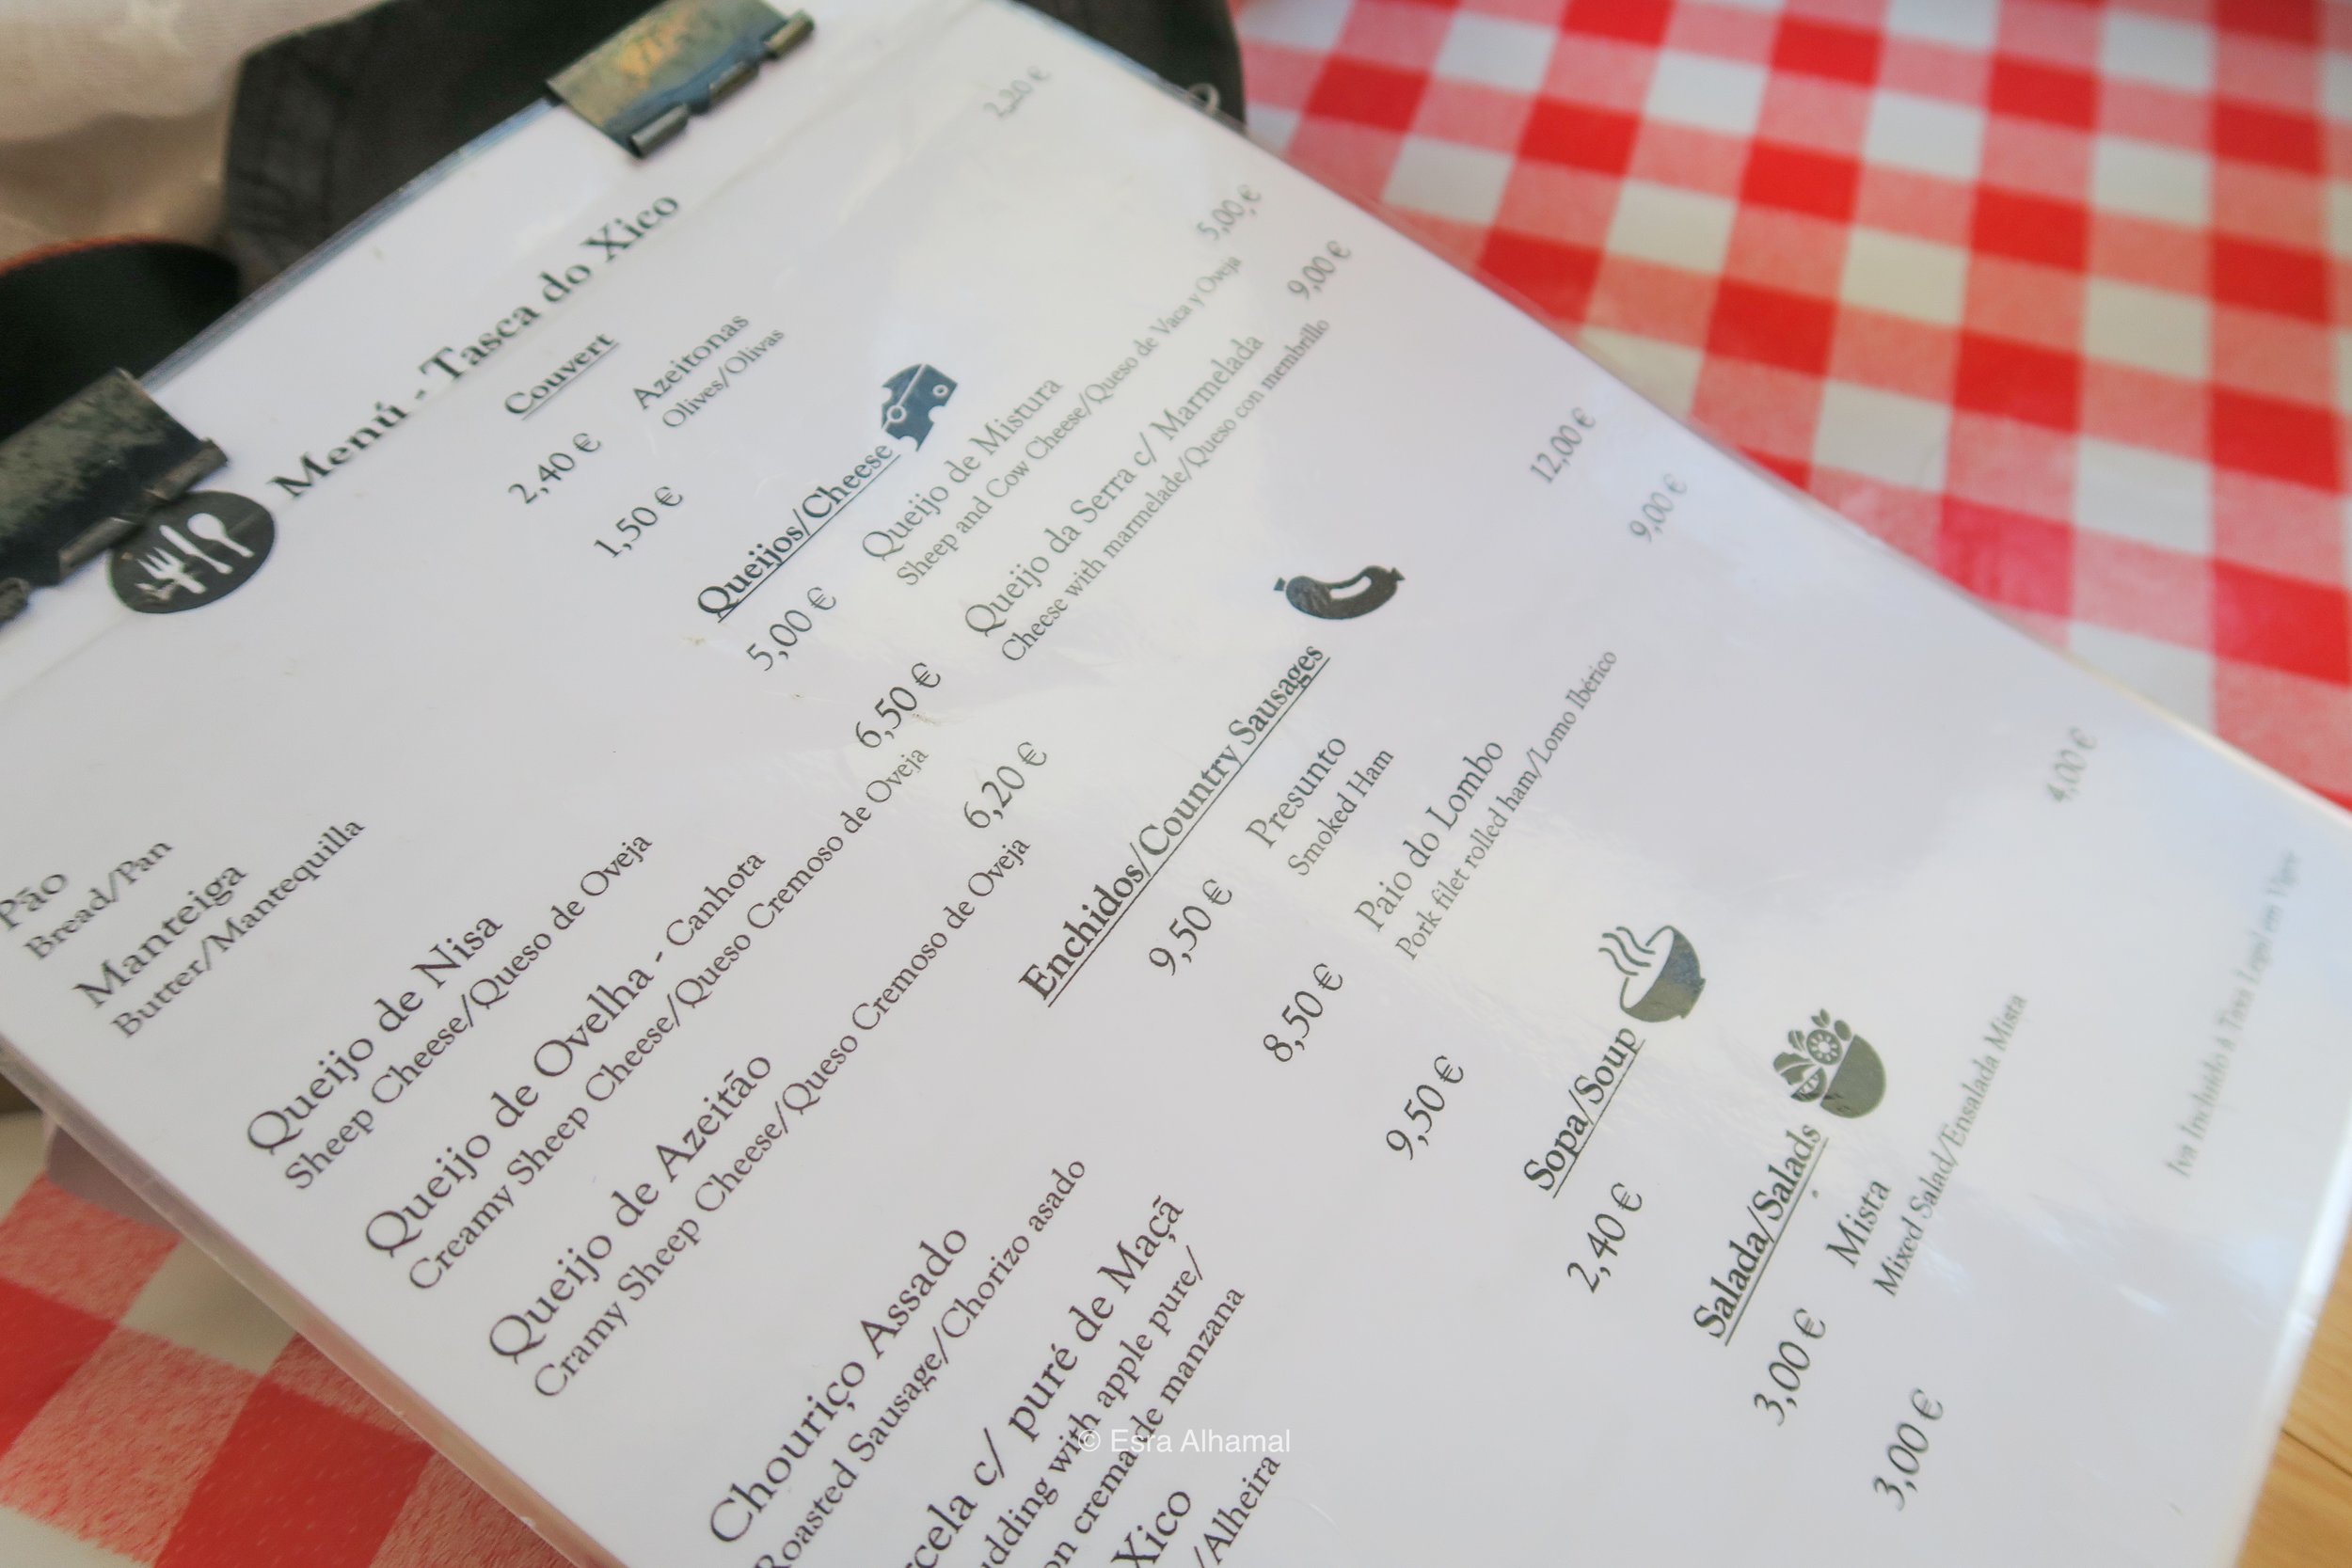 Menú - Tasca do Xico
Couvert
Pão 2,40 €
Bread/Pan
Manteiga 1,50 €
Butter/Mantequilla
Azeitonas 2,20 €
Olives/Olivas
Queijos/Cheese
Queijo de Nisa 5,00 €
Sheep Cheese/Queso de Oveja
Queijo de Ovelha - Canhota 6,50 €
Creamy Sheep Cheese/Queso Cremoso de Oveja
Queijo de Azeitão 6,20 €
Cramy Sheep Cheese/Queso Cremoso de Oveja
Queijo de Mistura 5,00 €
Sheep and Cow Cheese/Queso de Vaca y Oveja
Queijo da Serra c/ Marmelada 9,00 €
Cheese with marmelade/Queso con membrillo
Enchidos/Country Sausages
Chouriço Assado 9,50 €
Roasted Sausage/Chorizo asado
c/ puré de Maçã 8,50 €
with apple pure/
crema de manzana
Xico 9,50 €
/Alheira
Presunto 12,00 €
Smoked Ham
Paio do Lombo 9,00 €
Pork filet rolled ham/Lomo Ibérico
Sopa/Soup
2,40 €
Salada/Salads
3,00 €
3,00 €
Mista 4,00 €
Mixed Salad/Ensalada Mista
Iva Incluído à Taxa Legal em Vigor
© Esra Alhamal